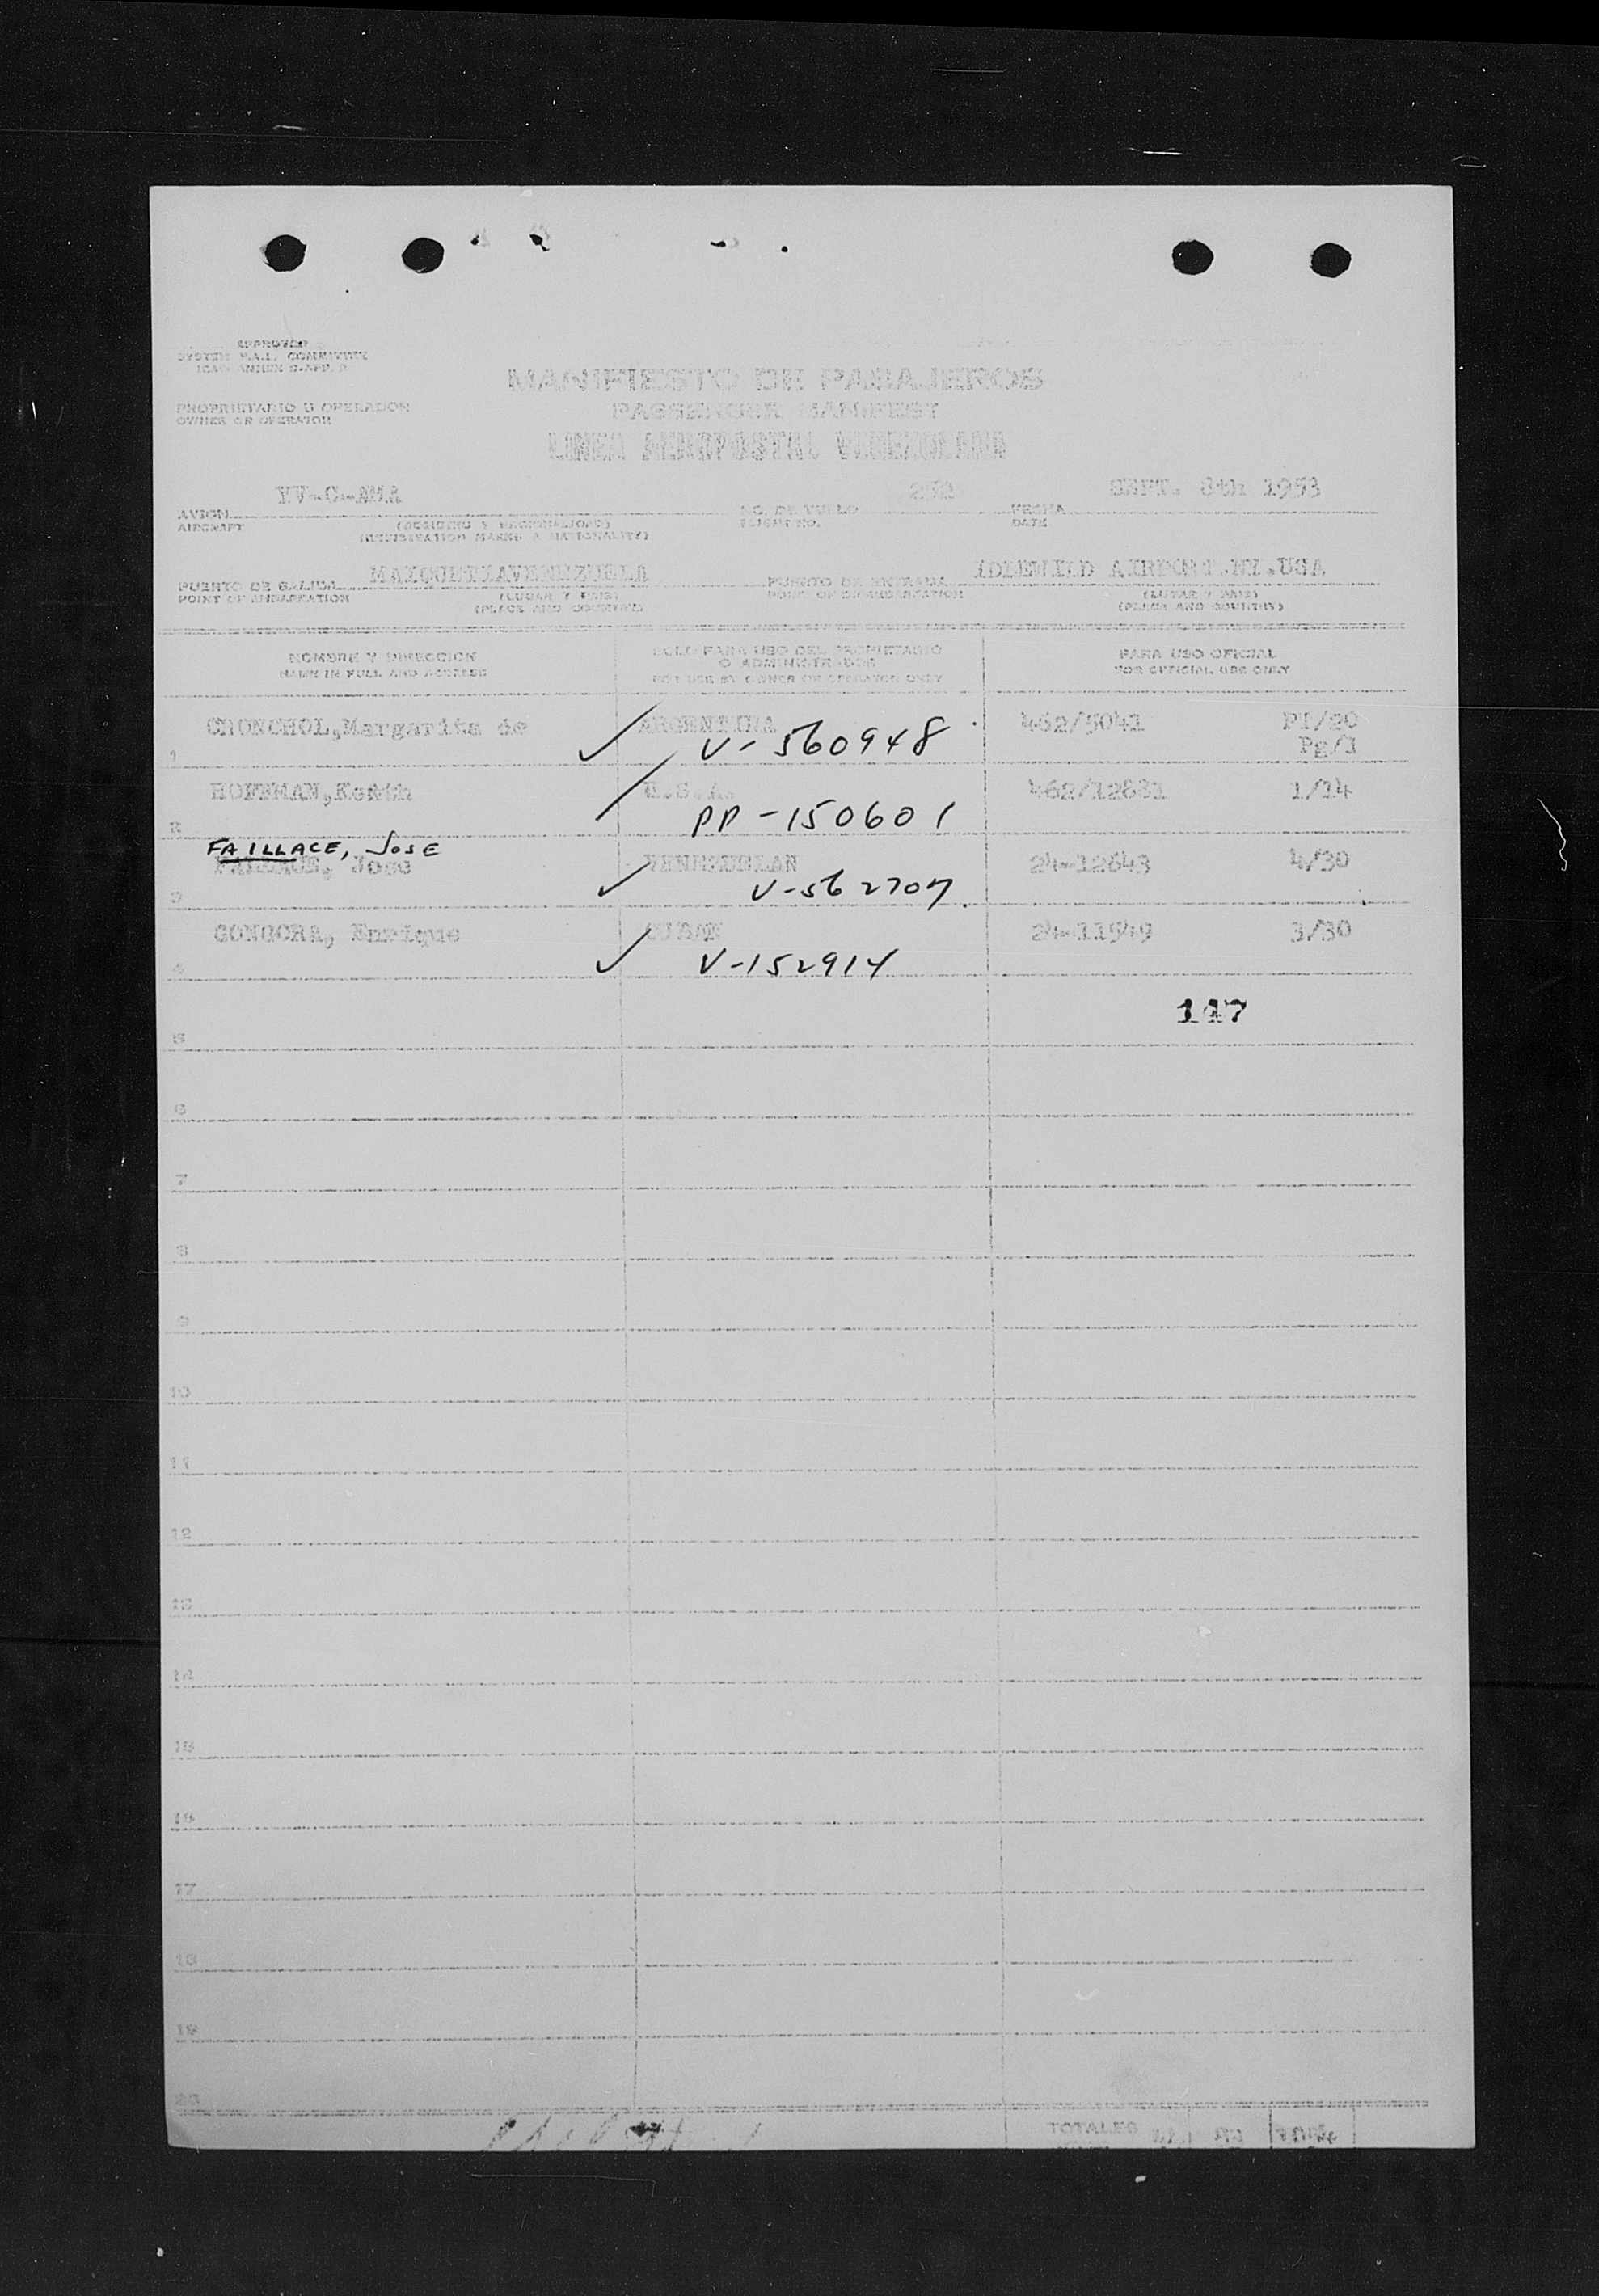 APPROVED
SYSTEM F.A.L. COMMITTEE
ICAO ANNEX 9-APP.
MANIFIESTO DE PASAJEROS
PROPRIETARIO U OPERADOR
OWNER OR OPERATOR
PASSENGER MANIFEST
LINEA AEROPOSTAL VENEZOLANA
YV-C-AMA 252 SEPT. 8th 1953
AVION NO. DE VUELO FECHA
AIRCRAFT FLIGHT NO. DATE
(REGISTRATION MARKS & NATIONALITY)
MAIQUETIA VENEZUELA IDLEWILD AIRPORT.NY.USA
PUERTO DE SALIDA PUERTO DE ENTRADA
POINT OF EMBARKATION (LUGAR Y PAIS) POINT OF DISEMBARKATION (LUGAR Y PAIS)
(PLACE AND COUNTRY) (PLACE AND COUNTRY)
NOMBRE Y DIRECCION SOLO PARA USO DEL PROPIETARIO PARA USO OFICIAL
O ADMINISTRADOR
NAME IN FULL AND ADDRESS FOR USE BY OWNER OR OPERATOR ONLY FOR OFFICIAL USE ONLY
CRONCHOL,Margarita de ARGENTINA 462/5041 PI/20
1 ✓ V-560948 Pg/1
HOFFMAN,Keith U.S.A. 462/12881 1/14
2 PP-150601
FAILLACE, JOSE
Jose VENEZUELAN 24-12643 4/30
3 ✓ V-562707
GONGORA, Enrique CUBAN 24-11949 3/30
4 ✓ V-152914
147
5
6
7
8
9
10
11
12
13
14
15
16
17
18
19
20
TOTALES